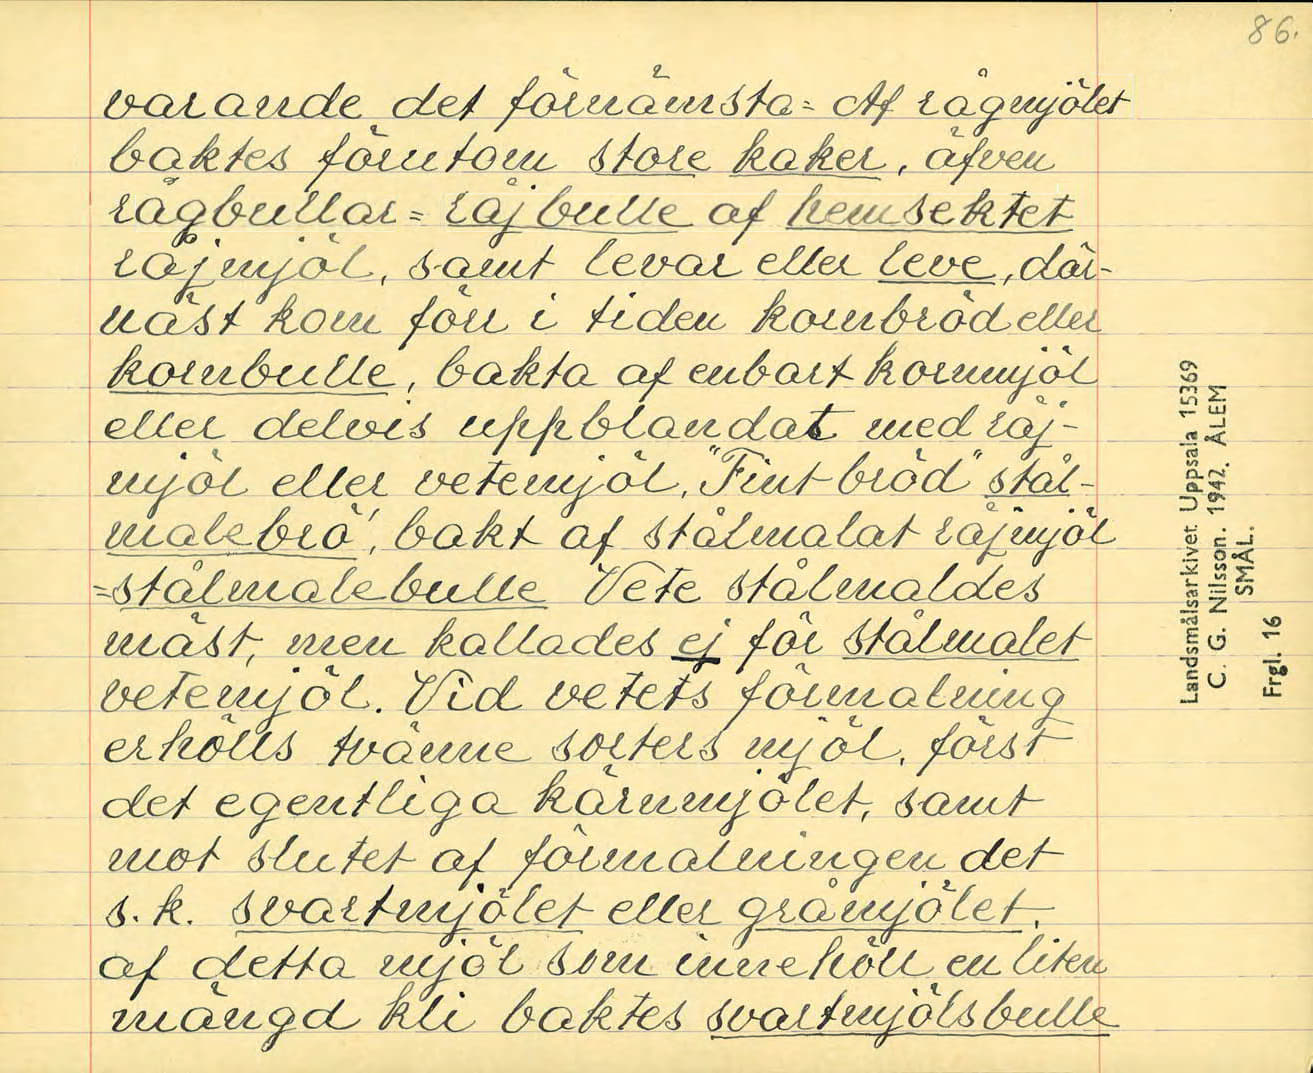 86.
varande det förnämsta = Af rågmjölet
baktes förutom store kaker, äfven
rågbullar = råjbulle af hemsektet
råjmjöl, samt levar eller leve, där-
näst kom förr i tiden kornbröd eller
kornbulle, bakta af enbart kornmjöl
eller delvis uppblandat med råj-
mjöl eller vetemjöl, "Fint bröd" stål-
malebrö', bakt af stålmalat råjmjöl
=stålmalebulle Vete stålmaldes
mäst, men kallades ej för stålmalet
vetemjöl. Vid vetets förmalning
erhölls tvänne sorters mjöl, först
det egentliga kärnmjölet, samt
mot slutet af förmalningen det
s.k. svartmjölet eller gråmjölet,
af detta mjöl som innehöll en liten
mängd kli baktes svartmjölsbulle
Landsmålsarkivet Uppsala 15369
C. G. Nilsson. 1942. ÅLEM
SMÅL.
Frgl. 16